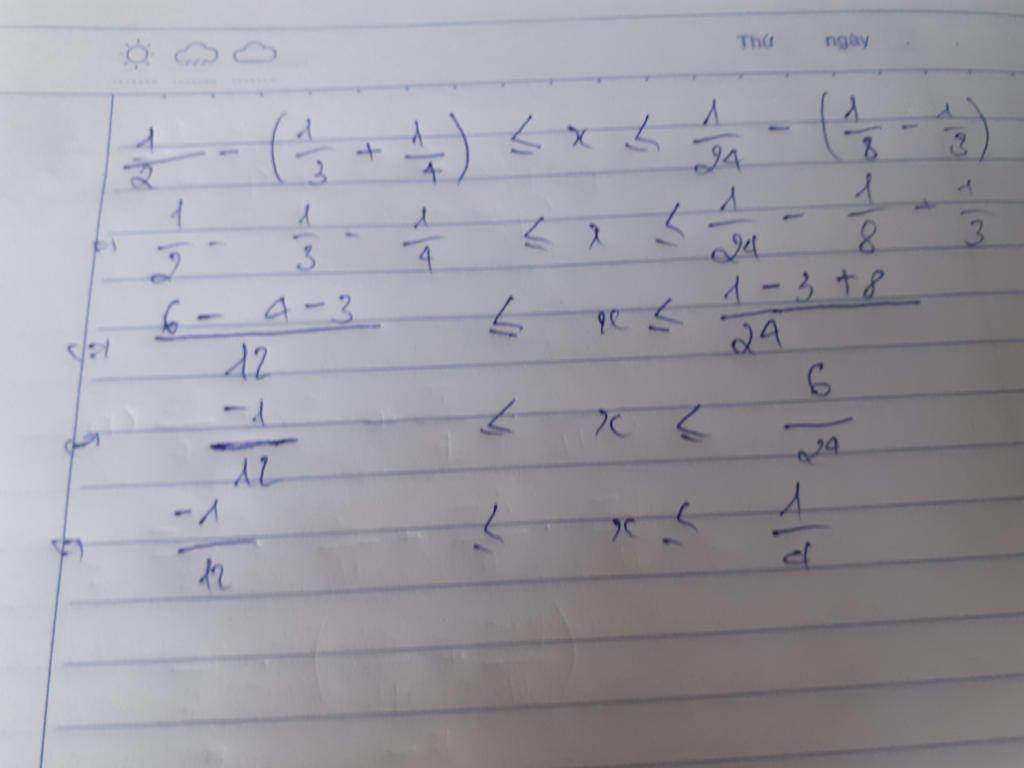 Thứ ngày
1/2 - (1/3 + 1/4) ≤ x ≤ 1/24 - (1/8 - 1/3)
⇔ 1/2 - 1/3 - 1/4 ≤ x ≤ 1/24 - 1/8 + 1/3
⇔ (6 - 4 - 3)/12 ≤ x ≤ (1 - 3 + 8)/24
⇔ -1/12 ≤ x ≤ 6/24
⇔ -1/12 ≤ x ≤ 1/4